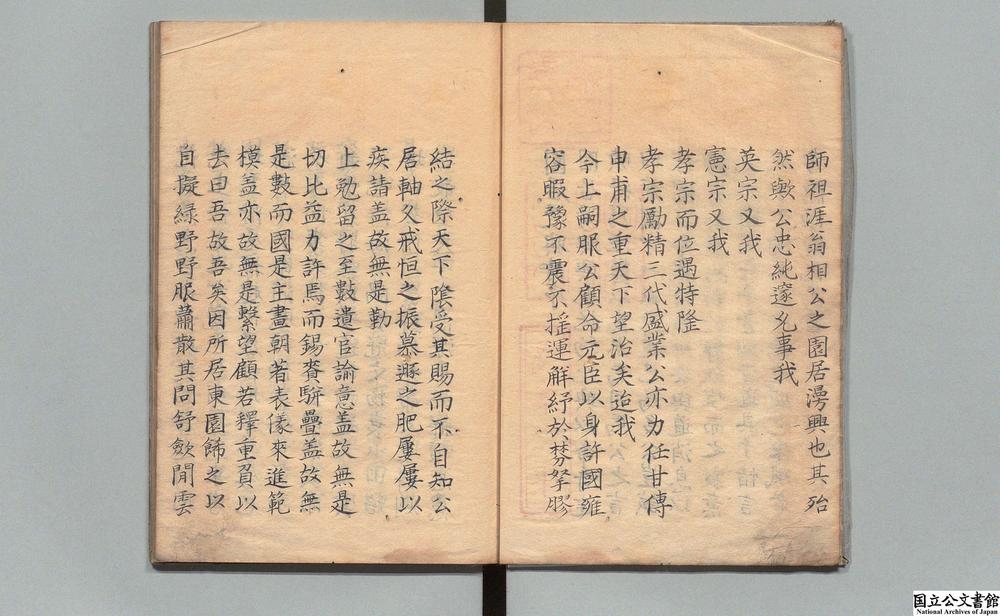 師祖涯翁相公之園居漫興也其殆
然歟公忠純邃允事我
英宗又我
憲宗又我
孝宗而位遇特隆
孝宗勵精三代盛業公亦力任甘傳
申甫之重天下望治矣迨我
今上嗣服公顧命元臣以身許國雍
容暇豫不震不揺運解紓於棼拏膠
結之際天下陰受其賜而不自知公
居軸久戒恒之振慕遯之肥屢屢以
疾請盖故無是勤
上勉留之至數遣官諭意盖故無是
切比益力許焉而錫賚駢疊盖故無
是數而國是主畫朝著表儀來進範
模盖亦故無是繫望顧若釋重負以
去曰吾故吾矣因所居東園餙之以
自擬綠野野服蕭散其問舒歛閒雲
国立公文書館
National Archives of Japan